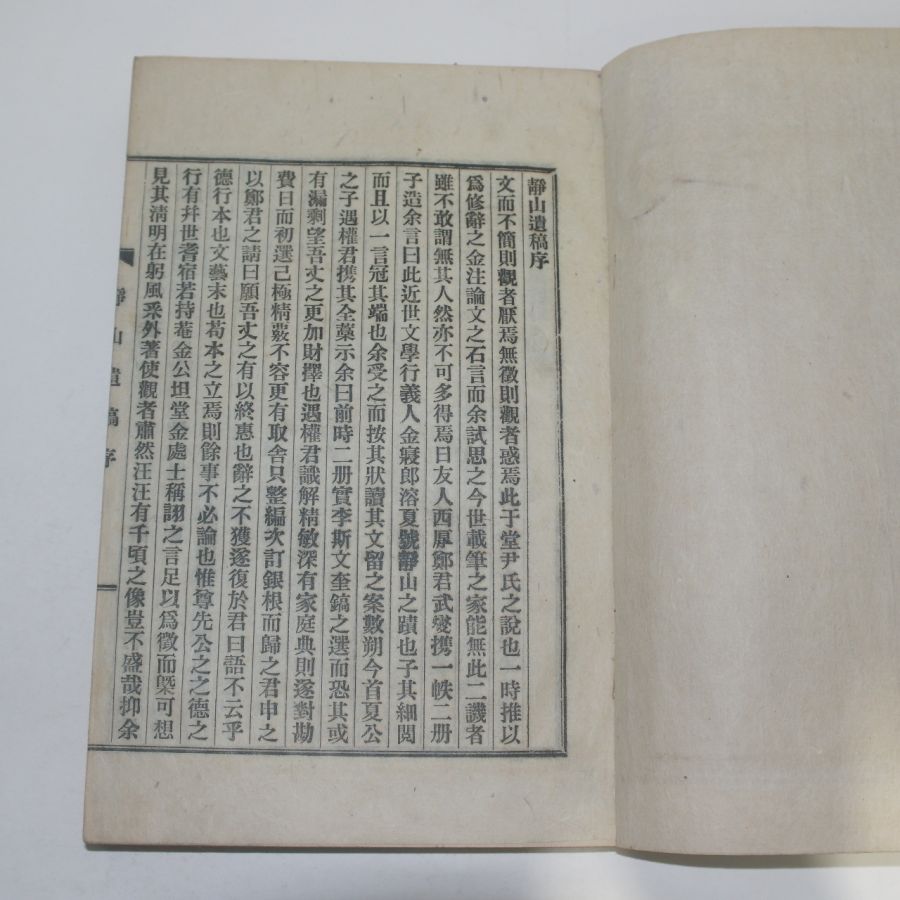 靜山遺稿序
文而不簡則觀者厭焉無徵則觀者惑焉此于堂尹氏之說也一時推以
爲修辭之金注論文之石言而余試思之今世載筆之家能無此二譏者
雖不敢謂無其人然亦不可多得焉日友人西厚鄭君武燮携一帙二册
子造余言曰此近世文學行義人金寢郎溶夏號靜山之蹟也子其細閱
而且以一言冠其端也余受之而按其狀讀其文留之案數朔今首夏公
之子遇權君携其全藁示余曰前時二册實李斯文奎鎬之選而恐其或
有漏剩望吾丈之更加財擇也遇權君識解精敏深有家庭典則遂對勘
費日而初選已極精覈不容更有取舍只整編次訂銀根而歸之君申之
以鄭君之請曰願吾丈之有以終惠也辭之不獲遂復於君曰語不云乎
德行本也文藝末也苟本之立焉則餘事不必論也惟尊先公之之德之
行有幷世耆宿若持菴金公坦堂金處士稱詡之言足以爲徵而槩可想
見其淸明在躬風采外著使觀者肅然汪汪有千頃之像豈不盛哉抑余
靜山遺稿序